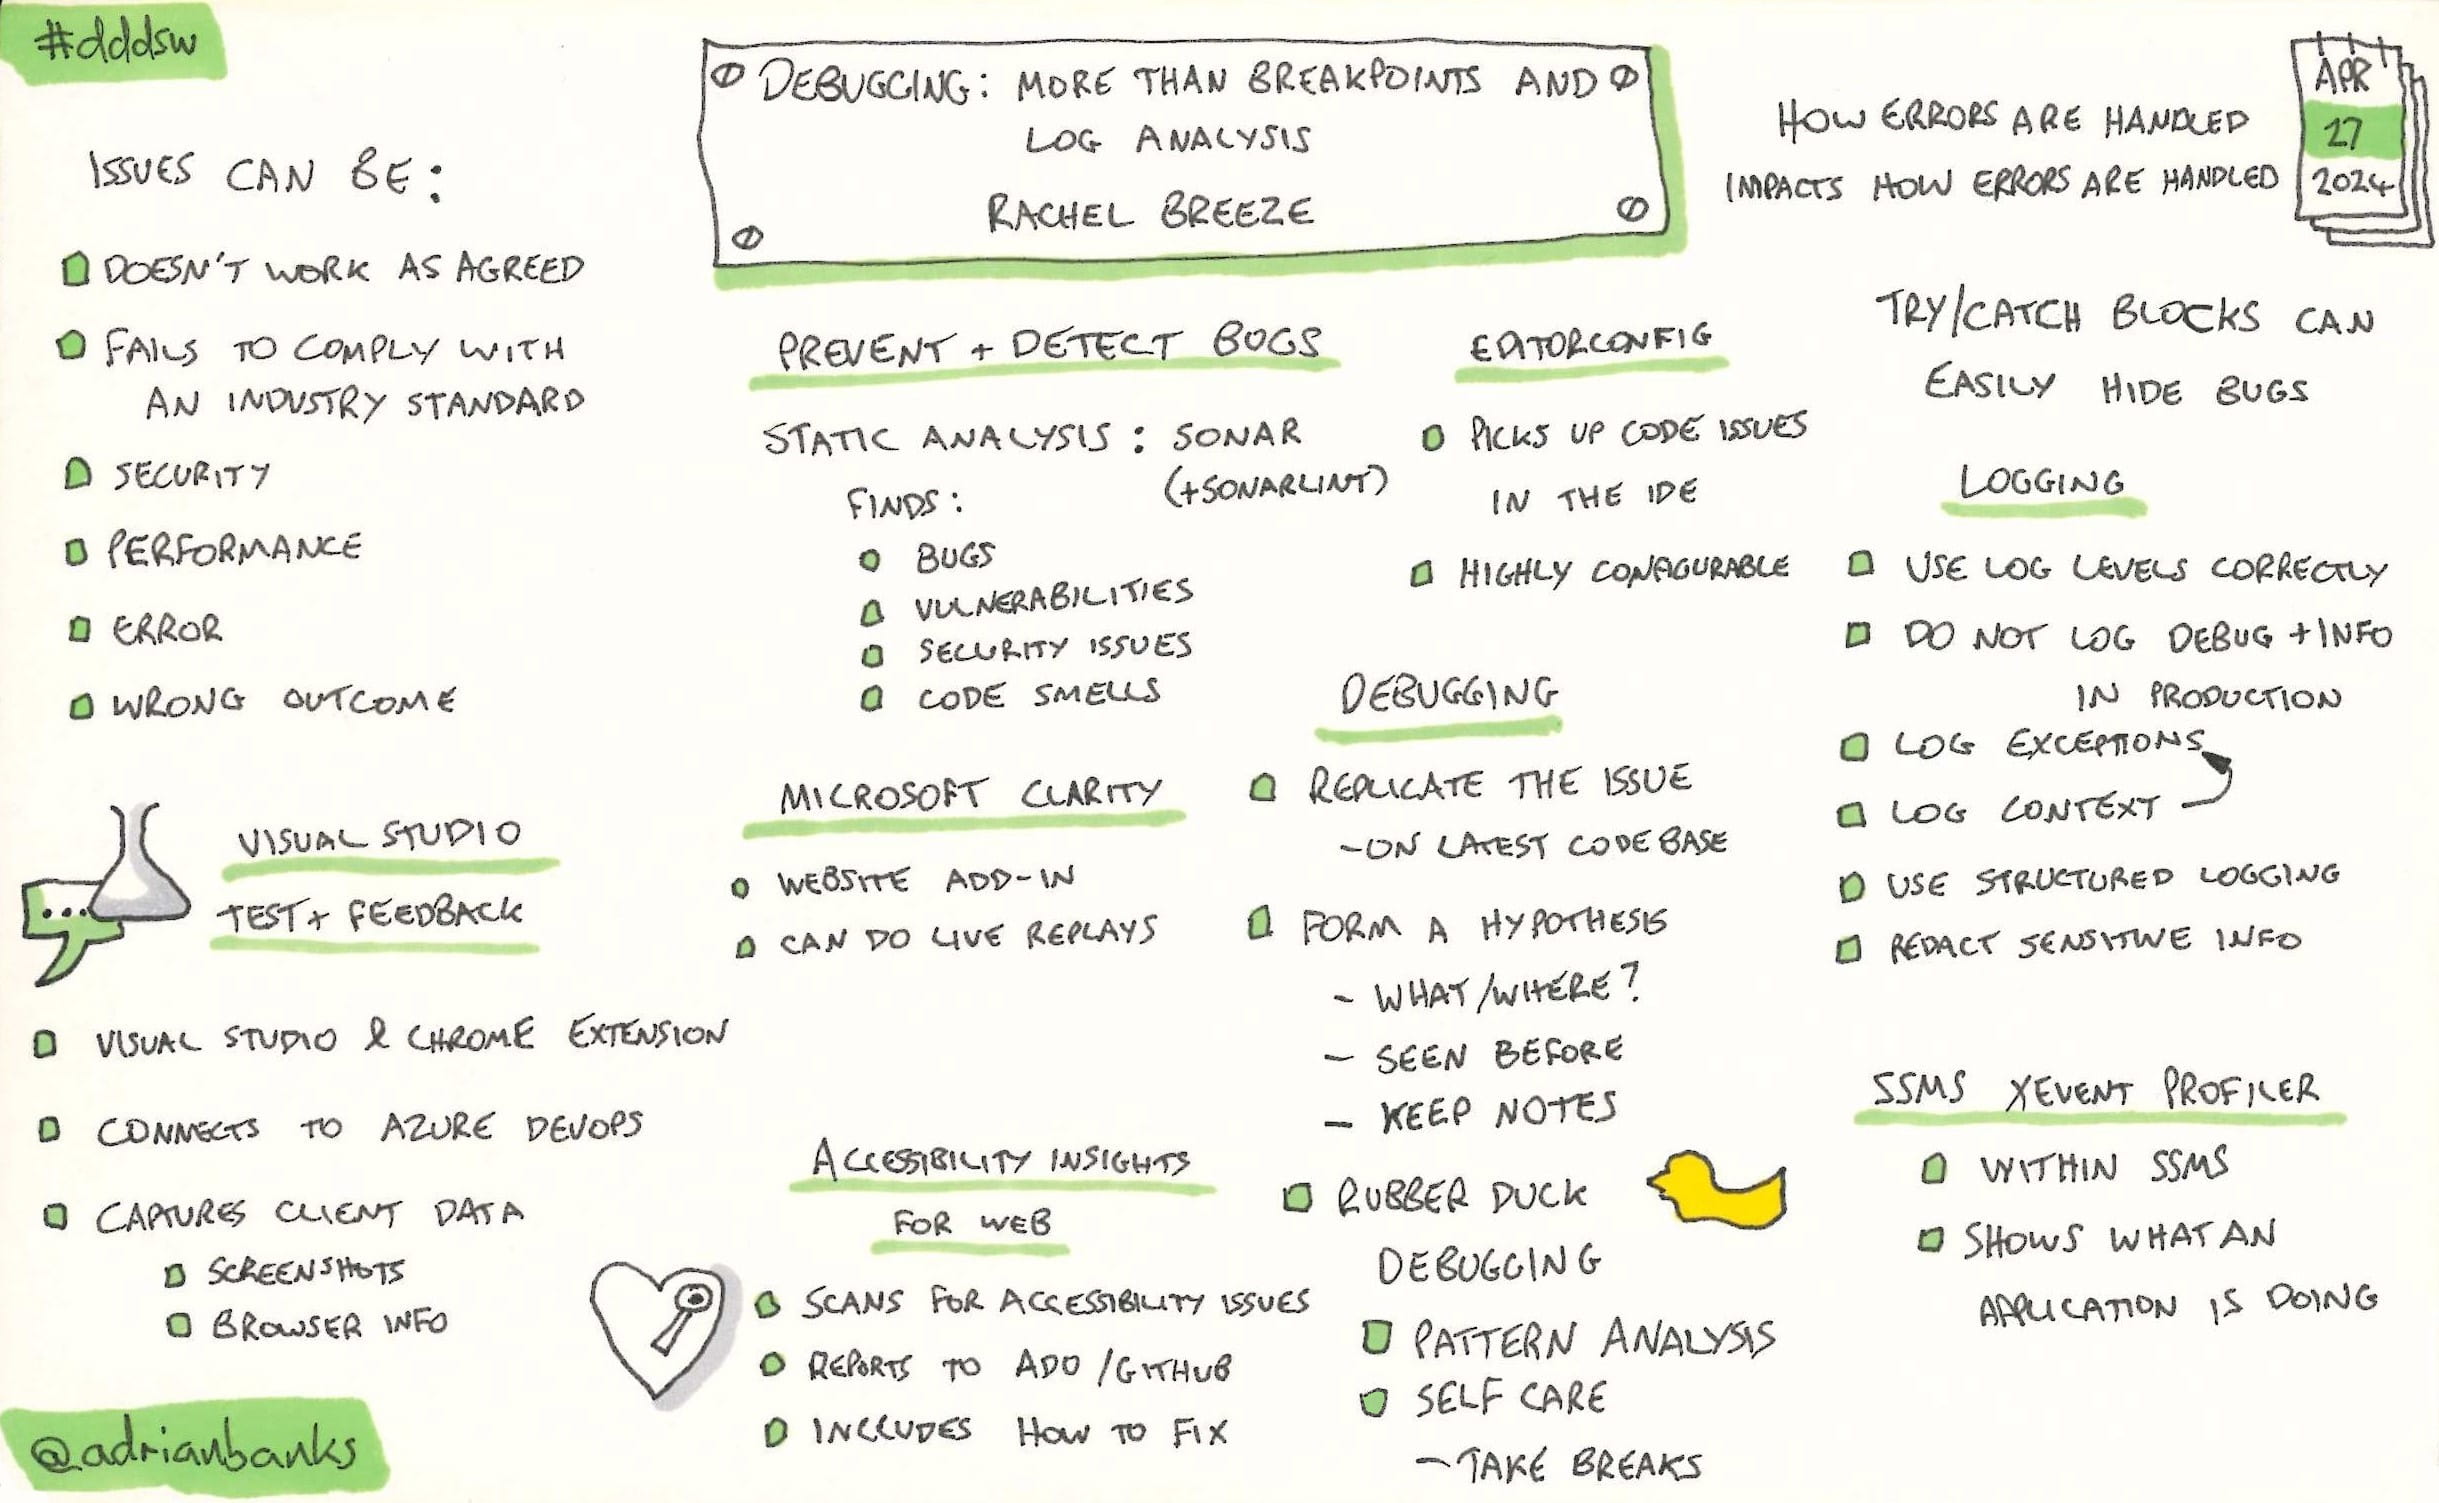 #dddsw
DEBUGGING: MORE THAN BREAKPOINTS AND
LOG ANALYSIS
RACHEL BREEZE
APR
27
2024
HOW ERRORS ARE HANDLED
IMPACTS HOW ERRORS ARE HANDLED
ISSUES CAN BE:
DOESN'T WORK AS AGREED
FAILS TO COMPLY WITH
AN INDUSTRY STANDARD
SECURITY
PERFORMANCE
ERROR
WRONG OUTCOME
VISUAL STUDIO
TEST + FEEDBACK
VISUAL STUDIO & CHROME EXTENSION
CONNECTS TO AZURE DEVOPS
CAPTURES CLIENT DATA
SCREENSHOTS
BROWSER INFO
@adrianbanks
PREVENT + DETECT BUGS
STATIC ANALYSIS: SONAR
(+SONARLINT)
FINDS:
BUGS
VULNERABILITIES
SECURITY ISSUES
CODE SMELLS
MICROSOFT CLARITY
WEBSITE ADD-IN
CAN DO LIVE REPLAYS
ACCESSIBILITY INSIGHTS
FOR WEB
SCANS FOR ACCESSIBILITY ISSUES
REPORTS TO ADO/GITHUB
INCLUDES HOW TO FIX
EDITORCONFIG
PICKS UP CODE ISSUES
IN THE IDE
HIGHLY CONFIGURABLE
DEBUGGING
REPLICATE THE ISSUE
- ON LATEST CODE BASE
FORM A HYPOTHESIS
- WHAT/WHERE?
- SEEN BEFORE
- KEEP NOTES
RUBBER DUCK
DEBUGGING
PATTERN ANALYSIS
SELF CARE
- TAKE BREAKS
TRY/CATCH BLOCKS CAN
EASILY HIDE BUGS
LOGGING
USE LOG LEVELS CORRECTLY
DO NOT LOG DEBUG + INFO
IN PRODUCTION
LOG EXCEPTIONS
LOG CONTEXT
USE STRUCTURED LOGGING
REDACT SENSITIVE INFO
SSMS XEVENT PROFILER
WITHIN SSMS
SHOWS WHAT AN
APPLICATION IS DOING